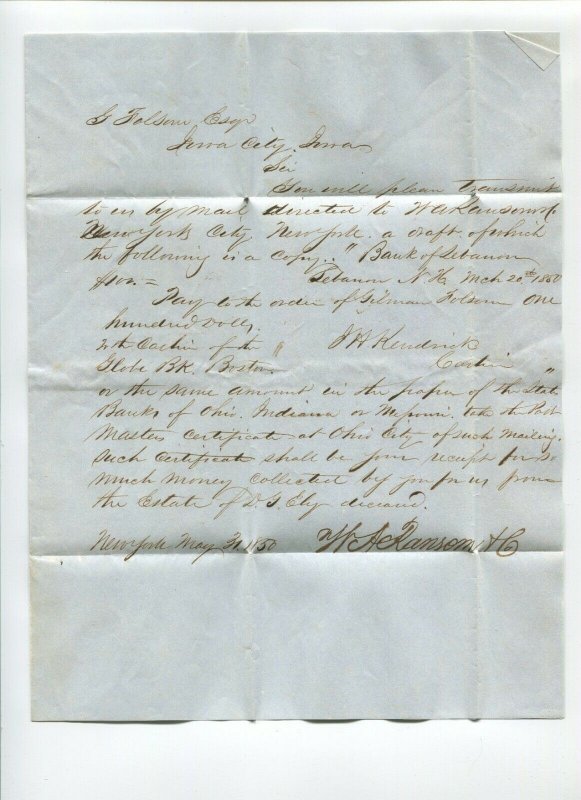 G Folsom Esqr
Iowa City, Iowa
Sir
You will please transmit
to us by mail directed to W A Ransom & Co.
New York City New York. a draft of which
the following is a copy.. " Bank of Lebanon
$100.= Lebanon N. H. Mch 20th 1850
Pay to the order of Gilman Folsom One
hundred Dolls.
To the Cashier of the " J H Kendrick
Globe Bk. Boston. Cashier "
or the same amount in the paper of the State
Banks of Ohio. Indiana or Missouri. take the Post
Masters certificate at Ohio City of such Mailing.
such certificate shall be your receipt for so
much money collected by you for us from
the Estate of D. G. Ely deceased.
New York May 1850 W A Ransom & Co